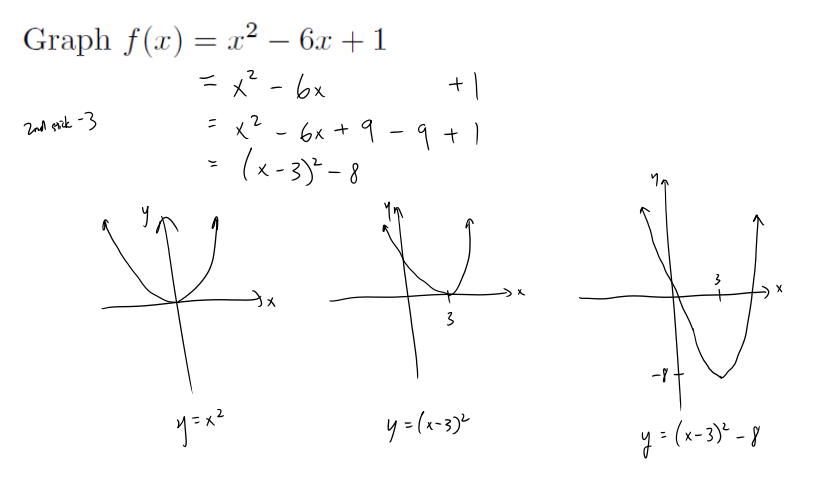 Graph f(x) = x² − 6x + 1
= x² - 6x + 1
2nd -3
= x² - 6x + 9 - 9 + 1
= (x-3)² - 8
y
x
y
x
3
y
x
3
-8
y = x²
y = (x-3)²
y = (x-3)² - 8